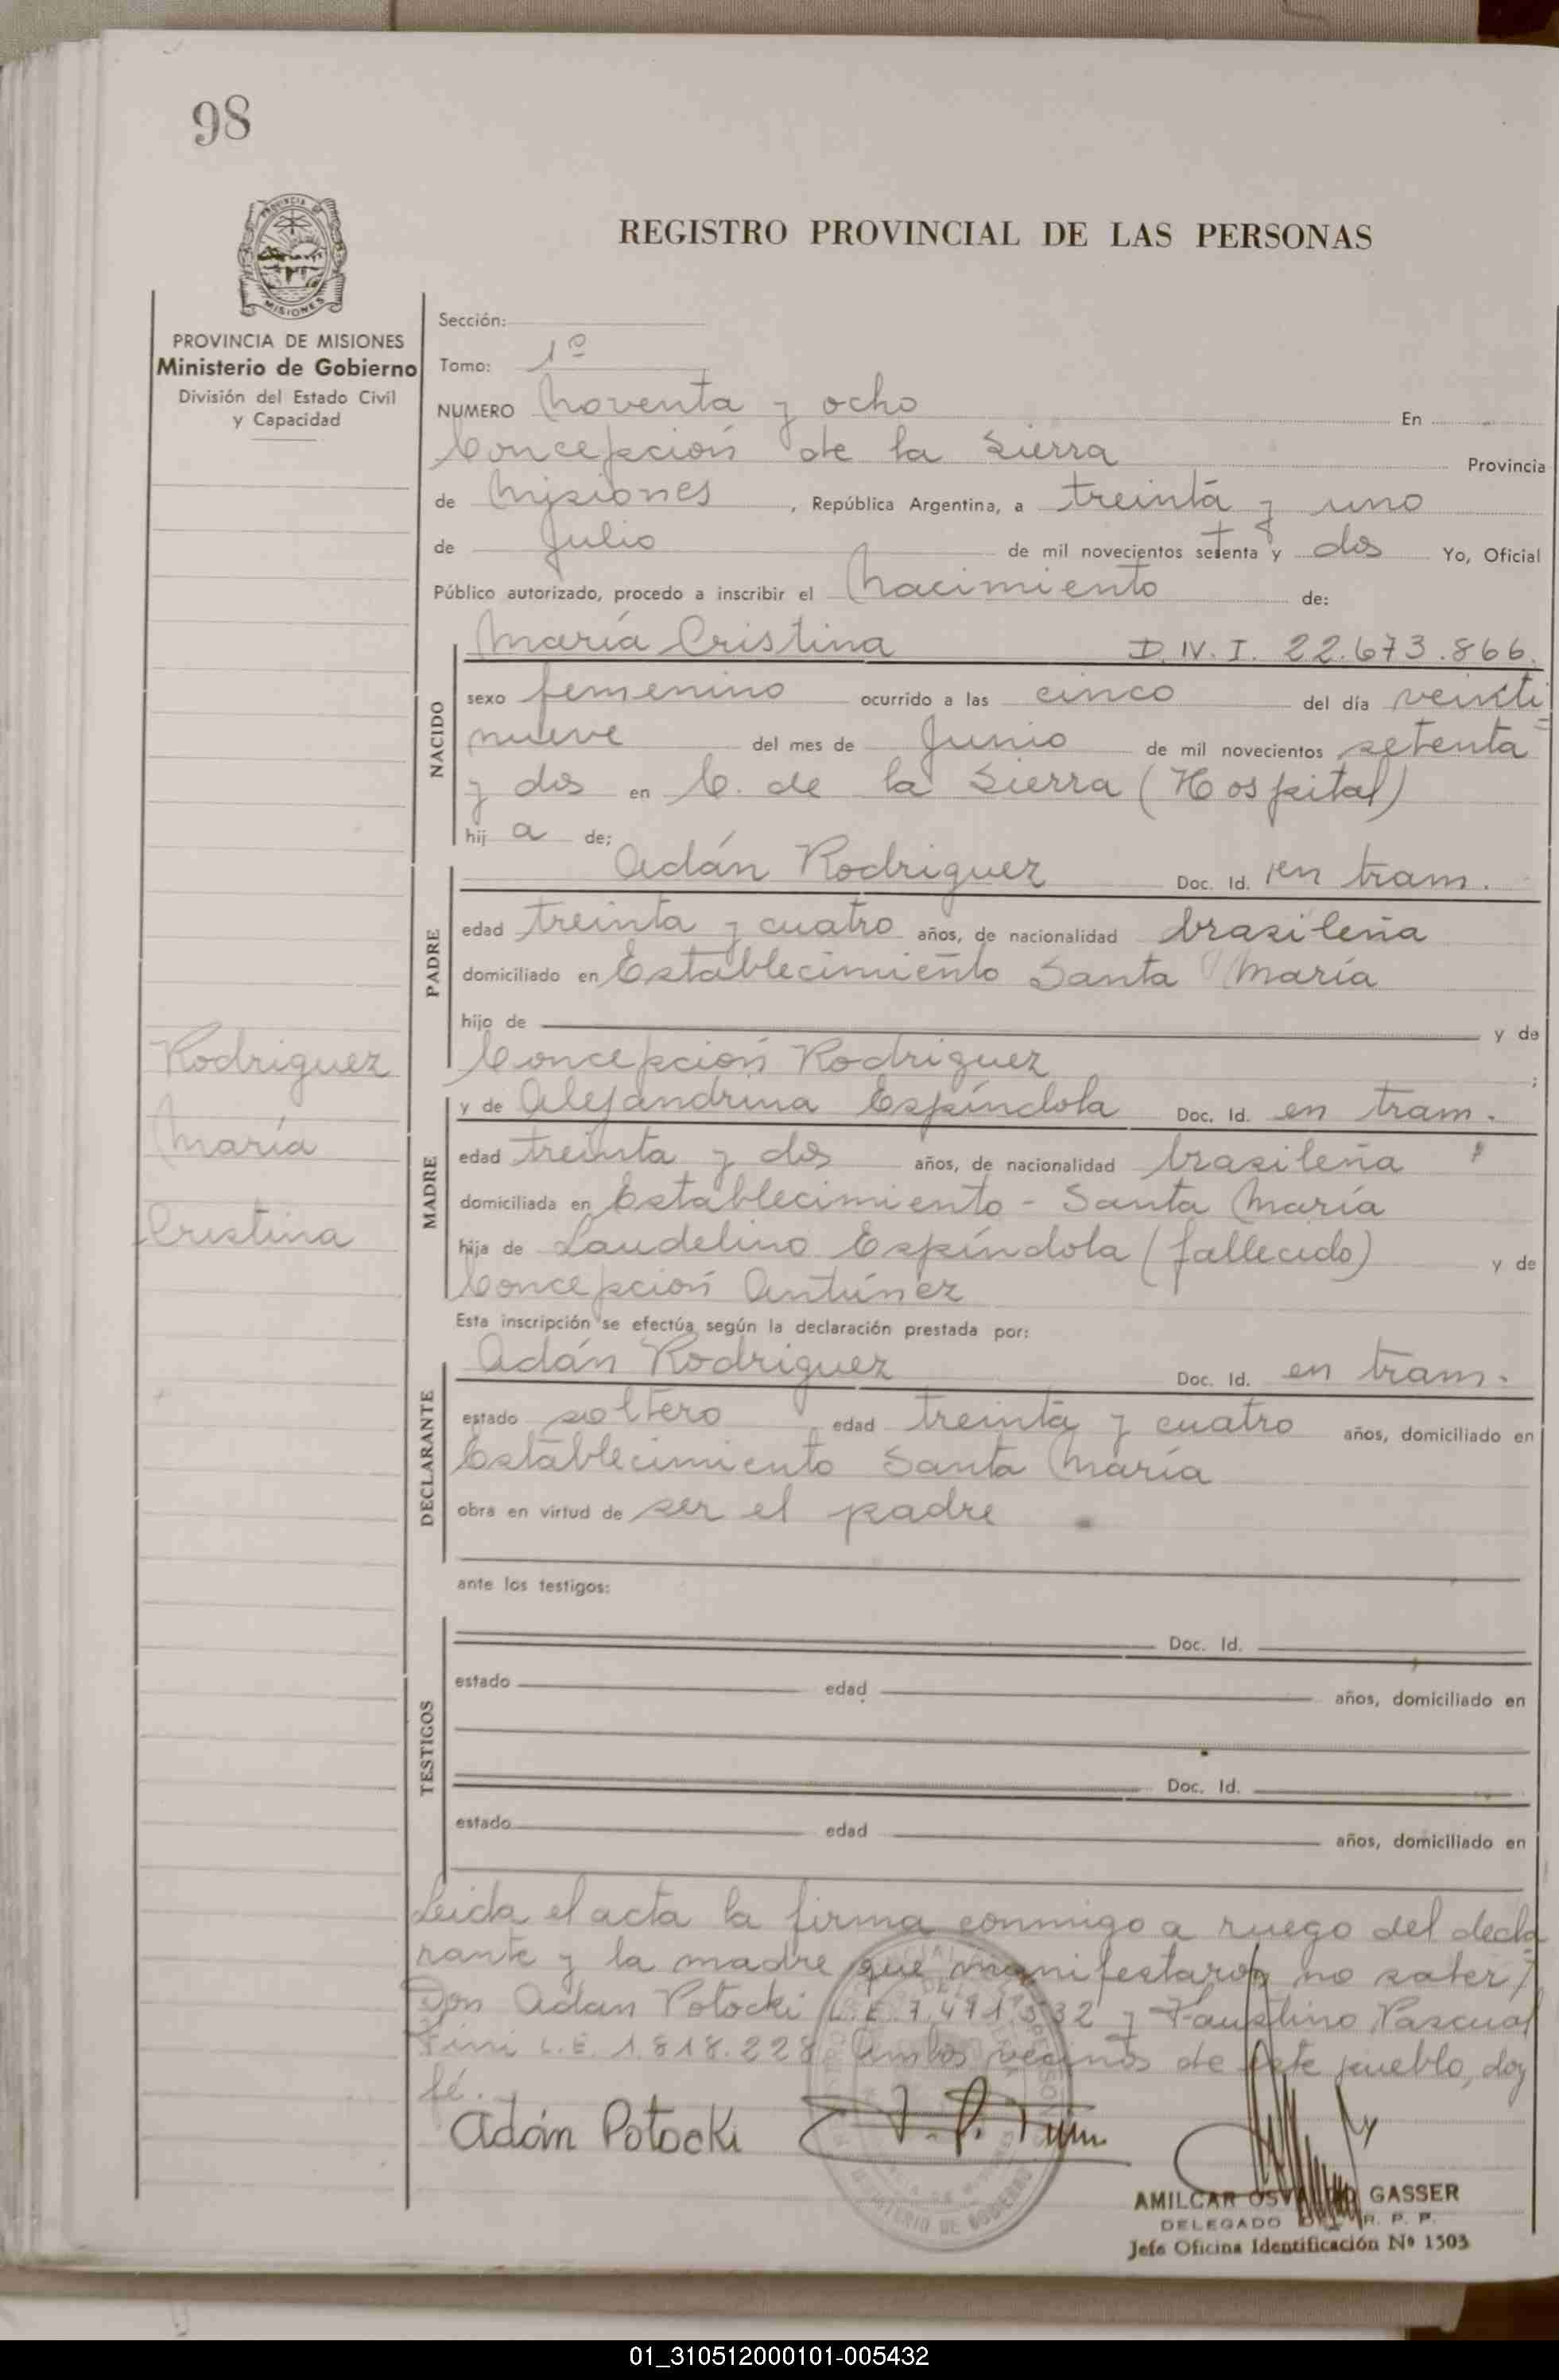 98
PROVINCIA
MISIONES
REGISTRO PROVINCIAL DE LAS PERSONAS
PROVINCIA DE MISIONES
Ministerio de Gobierno
División del Estado Civil
y Capacidad
Sección:
Tomo: 1º
NUMERO Noventa y ocho En
Concepción de la Sierra Provincia
de Misiones, República Argentina, a treinta y uno
de Julio de mil novecientos setenta y dos Yo, Oficial
Público autorizado, procedo a inscribir el Nacimiento de:
NACIDO
María Cristina D.N.I. 22.673.866.
sexo femenino ocurrido a las cinco del día veinti=
nueve del mes de Junio de mil novecientos setenta
y dos en C. de la Sierra (Hospital)
hij a de;
PADRE
Adán Rodriguez Doc. Id. en tram.
edad treinta y cuatro años, de nacionalidad brasileña
domiciliado en Establecimiento Santa María
hijo de y de
Concepción Rodriguez ;
Rodriguez
María
Cristina
MADRE
y de Alejandrina Espíndola Doc. Id. en tram.
edad treinta y dos años, de nacionalidad brasileña
domiciliada en Establecimiento - Santa María
hija de Laudelino Espíndola (fallecido) y de
Concepción Antúnez
Esta inscripción se efectúa según la declaración prestada por:
DECLARANTE
Adán Rodriguez Doc. Id. en tram.
estado soltero edad treinta y cuatro años, domiciliado en
Establecimiento Santa María
obra en virtud de ser el padre
ante los testigos:
TESTIGOS
Doc. Id.
estado edad años, domiciliado en
Doc. Id.
estado edad años, domiciliado en
Leida el acta la firma conmigo a ruego del decla
rante y la madre que manifestaron no saber,
Don Adan Potocki L.E. 7.491.532 y Faustino Pascual
Fini L.E. 1.818.228 Ambos vecinos de este pueblo, doy
fé.
Adán Potocki
MINISTERIO DE GOBIERNO
AMILCAR OSVALDO GASSER
DELEGADO R. P. P.
Jefe Oficina Identificación Nº 1503
01_310512000101-005432